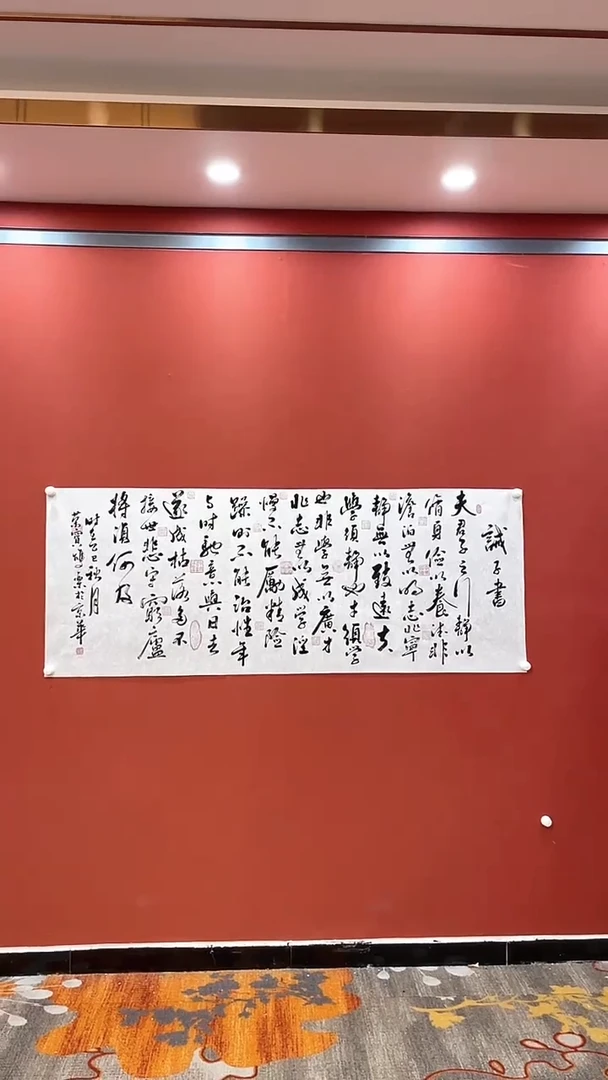 誡子書
夫君子之行静以
脩身儉以養德非
澹泊無以明志非寧
静無以致遠夫
學須静也才須学
也非學無以廣才
非志無以成学淫
慢不能勵精險
躁則不能治性年
与時馳意與日去
遂成枯落多不
接世悲守窮廬
將復何及
時在乙巳秋月
於京華